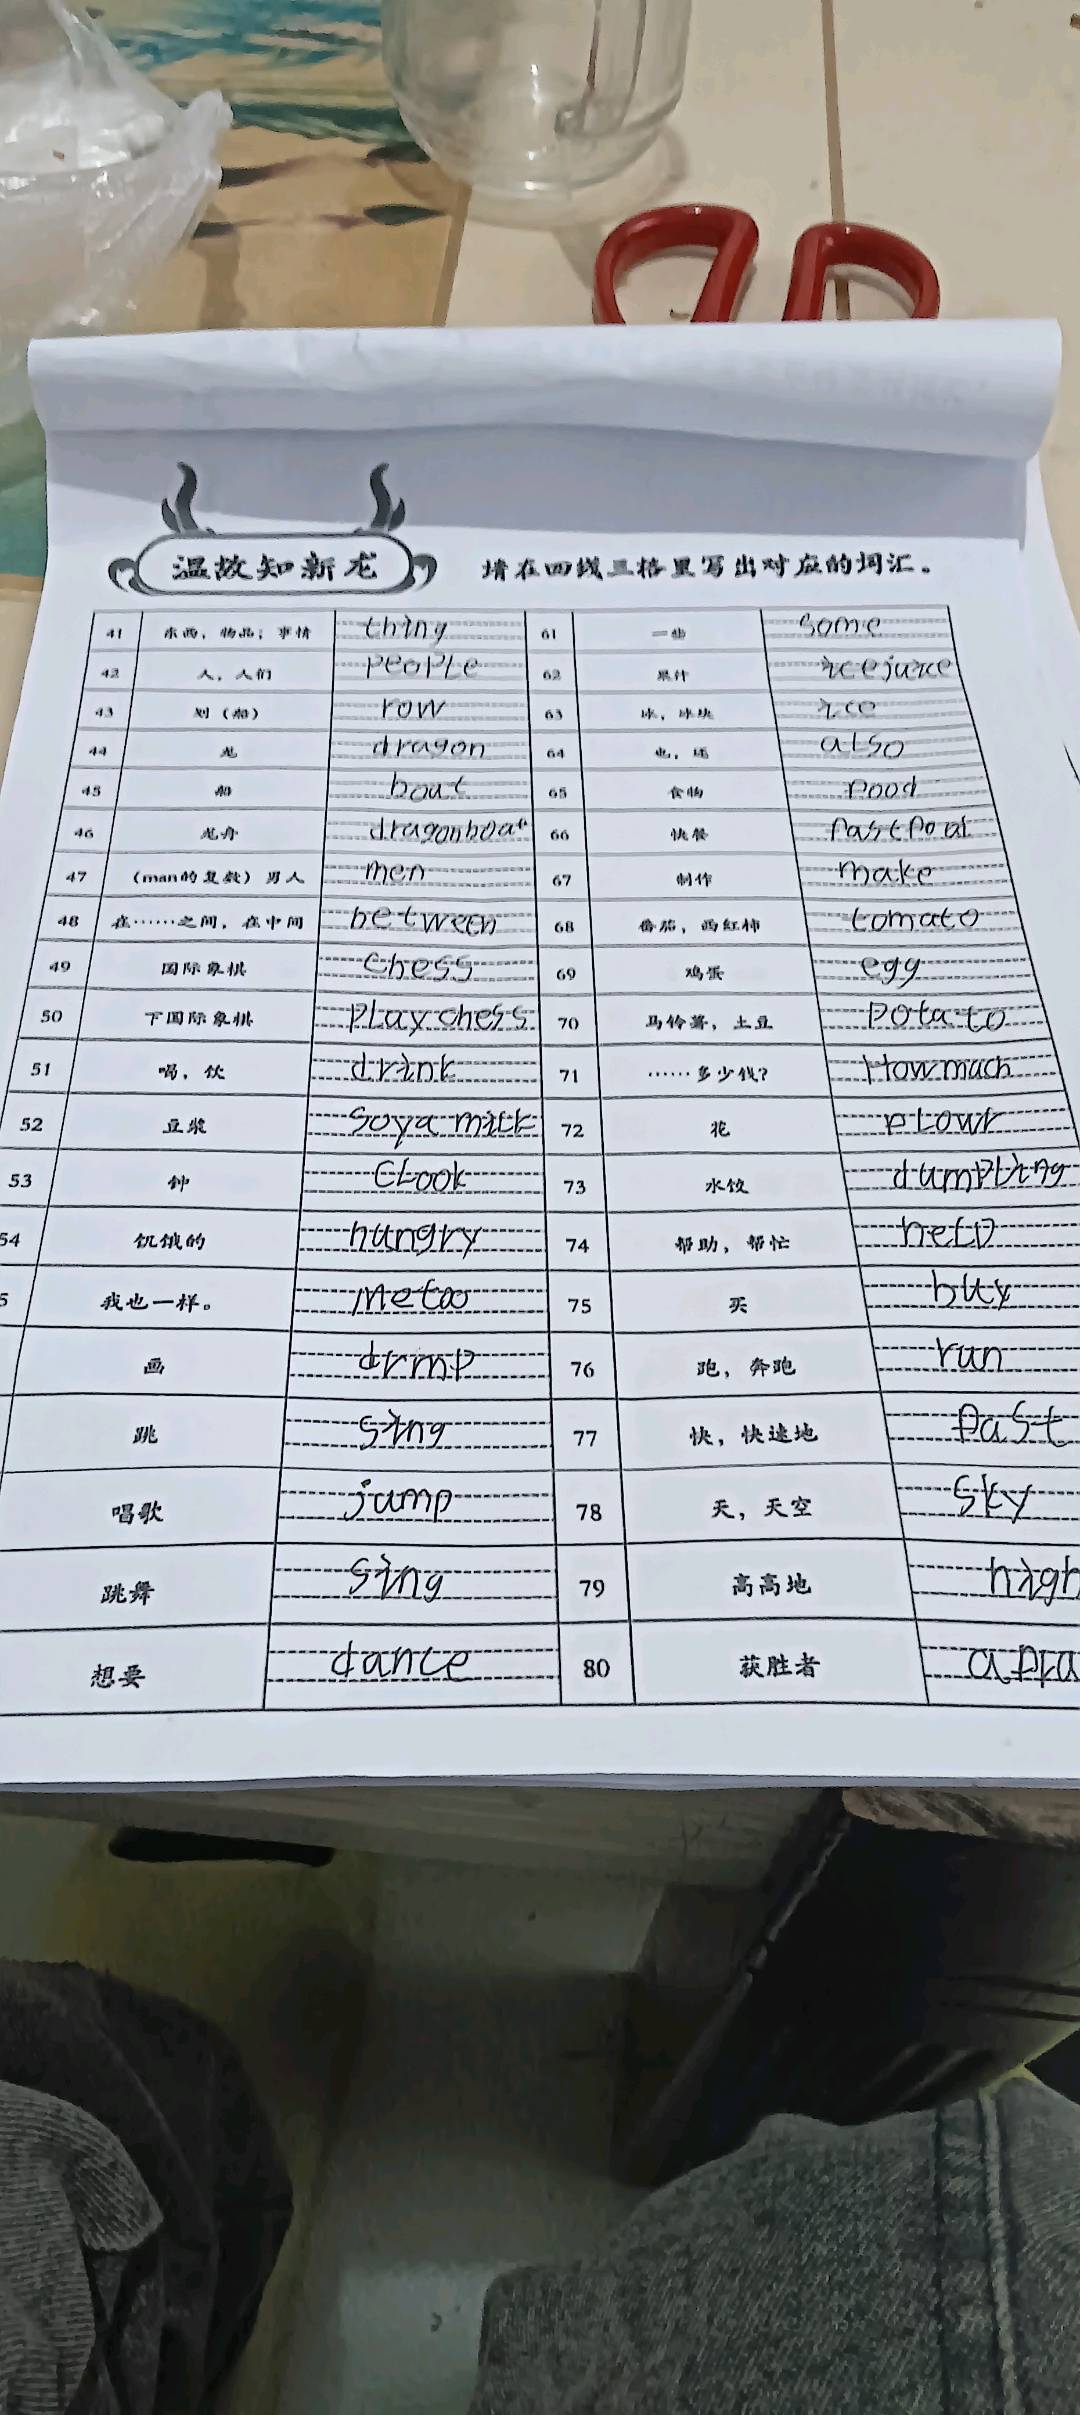 温故知新龙 请在四线三格里写出对应的词汇。
41 东西，物品；事情 thing 61 一些 some
42 人，人们 people 62 果汁 icejuice
43 划（船） row 63 冰，冰块 ice
44 龙 dragon 64 也，还 also
45 船 boat 65 食物 food
46 龙舟 dragonboat 66 快餐 fastfood
47 （man的复数）男人 men 67 制作 make
48 在……之间，在中间 between 68 番茄，西红柿 tomato
49 国际象棋 chess 69 鸡蛋 egg
50 下国际象棋 play chess 70 马铃薯，土豆 potato
51 喝，饮 drink 71 ……多少钱？ How much
52 豆浆 soya milk 72 花 flowr
53 钟 clook 73 水饺 dumpling
54 饥饿的 hungry 74 帮助，帮忙 help
5 我也一样。 me too 75 买 buy
画 drmp 76 跑，奔跑 run
跳 sing 77 快，快速地 fast
唱歌 jump 78 天，天空 sky
跳舞 sing 79 高高地 high
想要 dance 80 获胜者